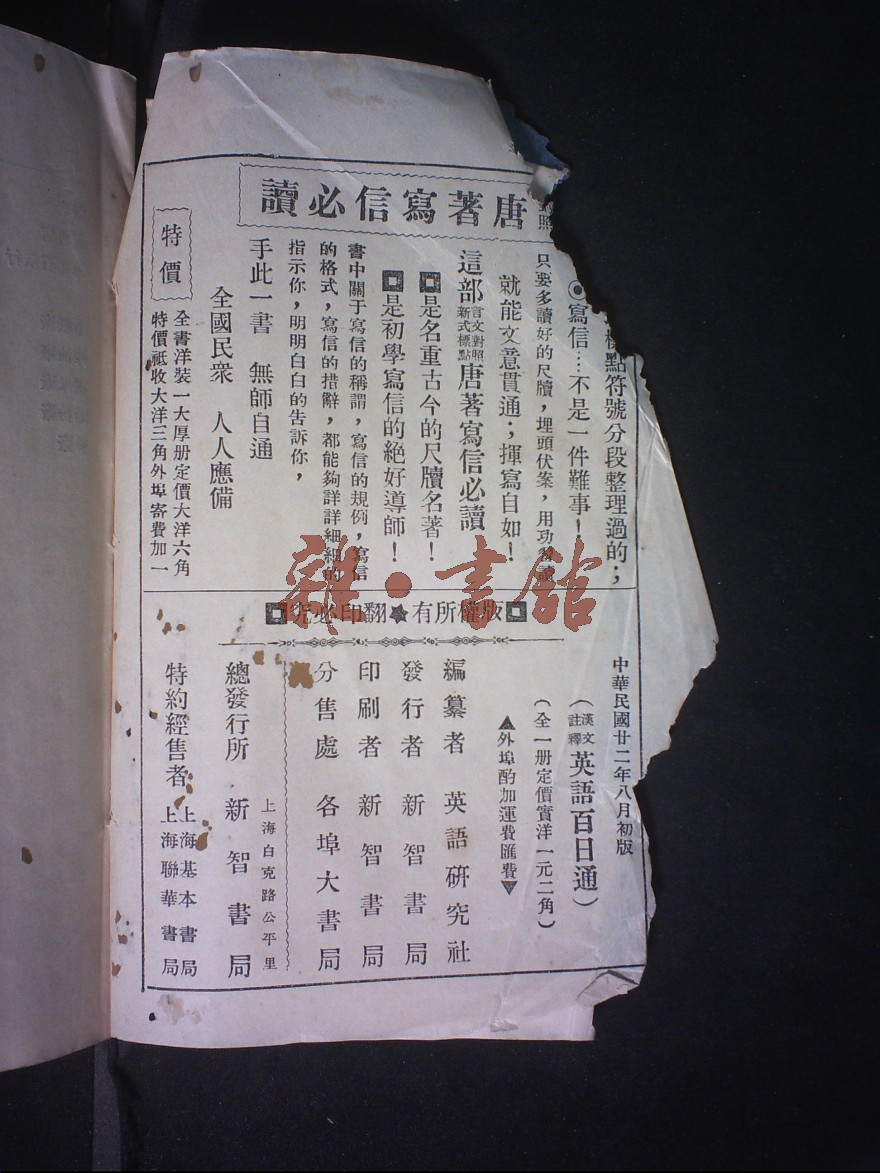 唐著寫信必讀
對照
標點符號分段整理過的；
◉寫信…不是一件難事！
只要多讀好的尺牘，埋頭伏案，用功
就能文意貫通；揮寫自如！
這部言文對照新式標點唐著寫信必讀
是名重古今的尺牘名著！
是初學寫信的絕好導師！
書中關于寫信的稱謂，寫信的規例，寫信
的格式，寫信的措辭，都能夠詳詳細細的
指示你，明明白白的告訴你，
手此一書 無師自通
全國民衆 人人應備
特價
全書洋裝一大厚册定價大洋六角
特價祗收大洋三角外埠寄費加一
版權所有★翻印必究
中華民國廿二年八月初版
（漢文註釋英語百日通）
（全一册定價實洋一元二角）
▲外埠酌加運費匯費▼
編纂者 英語研究社
發行者 新智書局
印刷者 新智書局
分售處 各埠大書局
上海白克路公平里
總發行所 新智書局
特約經售者 上海基本書局
上海聯華書局
雜·書館